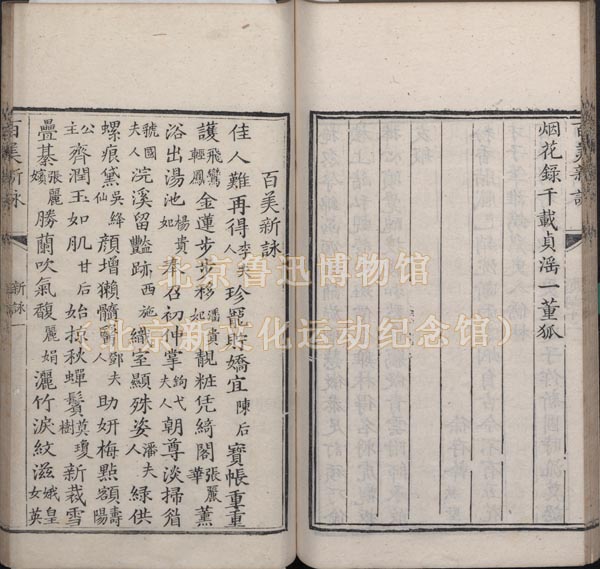 百美新詠
烟花錄千載貞滛一董狐
百美新詠
佳人難再得李夫人珍寵貯嬌宜陳后寶帳重重
護飛鸞輕鳳金蓮步步移潘貴妃靚粧凭綺閣張麗華薰
浴出湯池楊貴妃奉召初伸掌鈎弋夫人朝尊淡掃眉
虢國夫人浣溪留豔跡西施織室顯殊姿潘夫人綠供
螺痕黛吳絳仙顏增獺髓醫鄧夫人助妍梅點額壽陽
公主齊潤玉如肌甘后始掠秋蟬鬢莫瓊樹新裁雪
疊綦張麗嬪勝蘭吹氣馥麗娟灑竹淚紋滋娥皇女英
百美新詠
新詠
一
北京鲁迅博物馆
（北京新文化运动纪念馆）